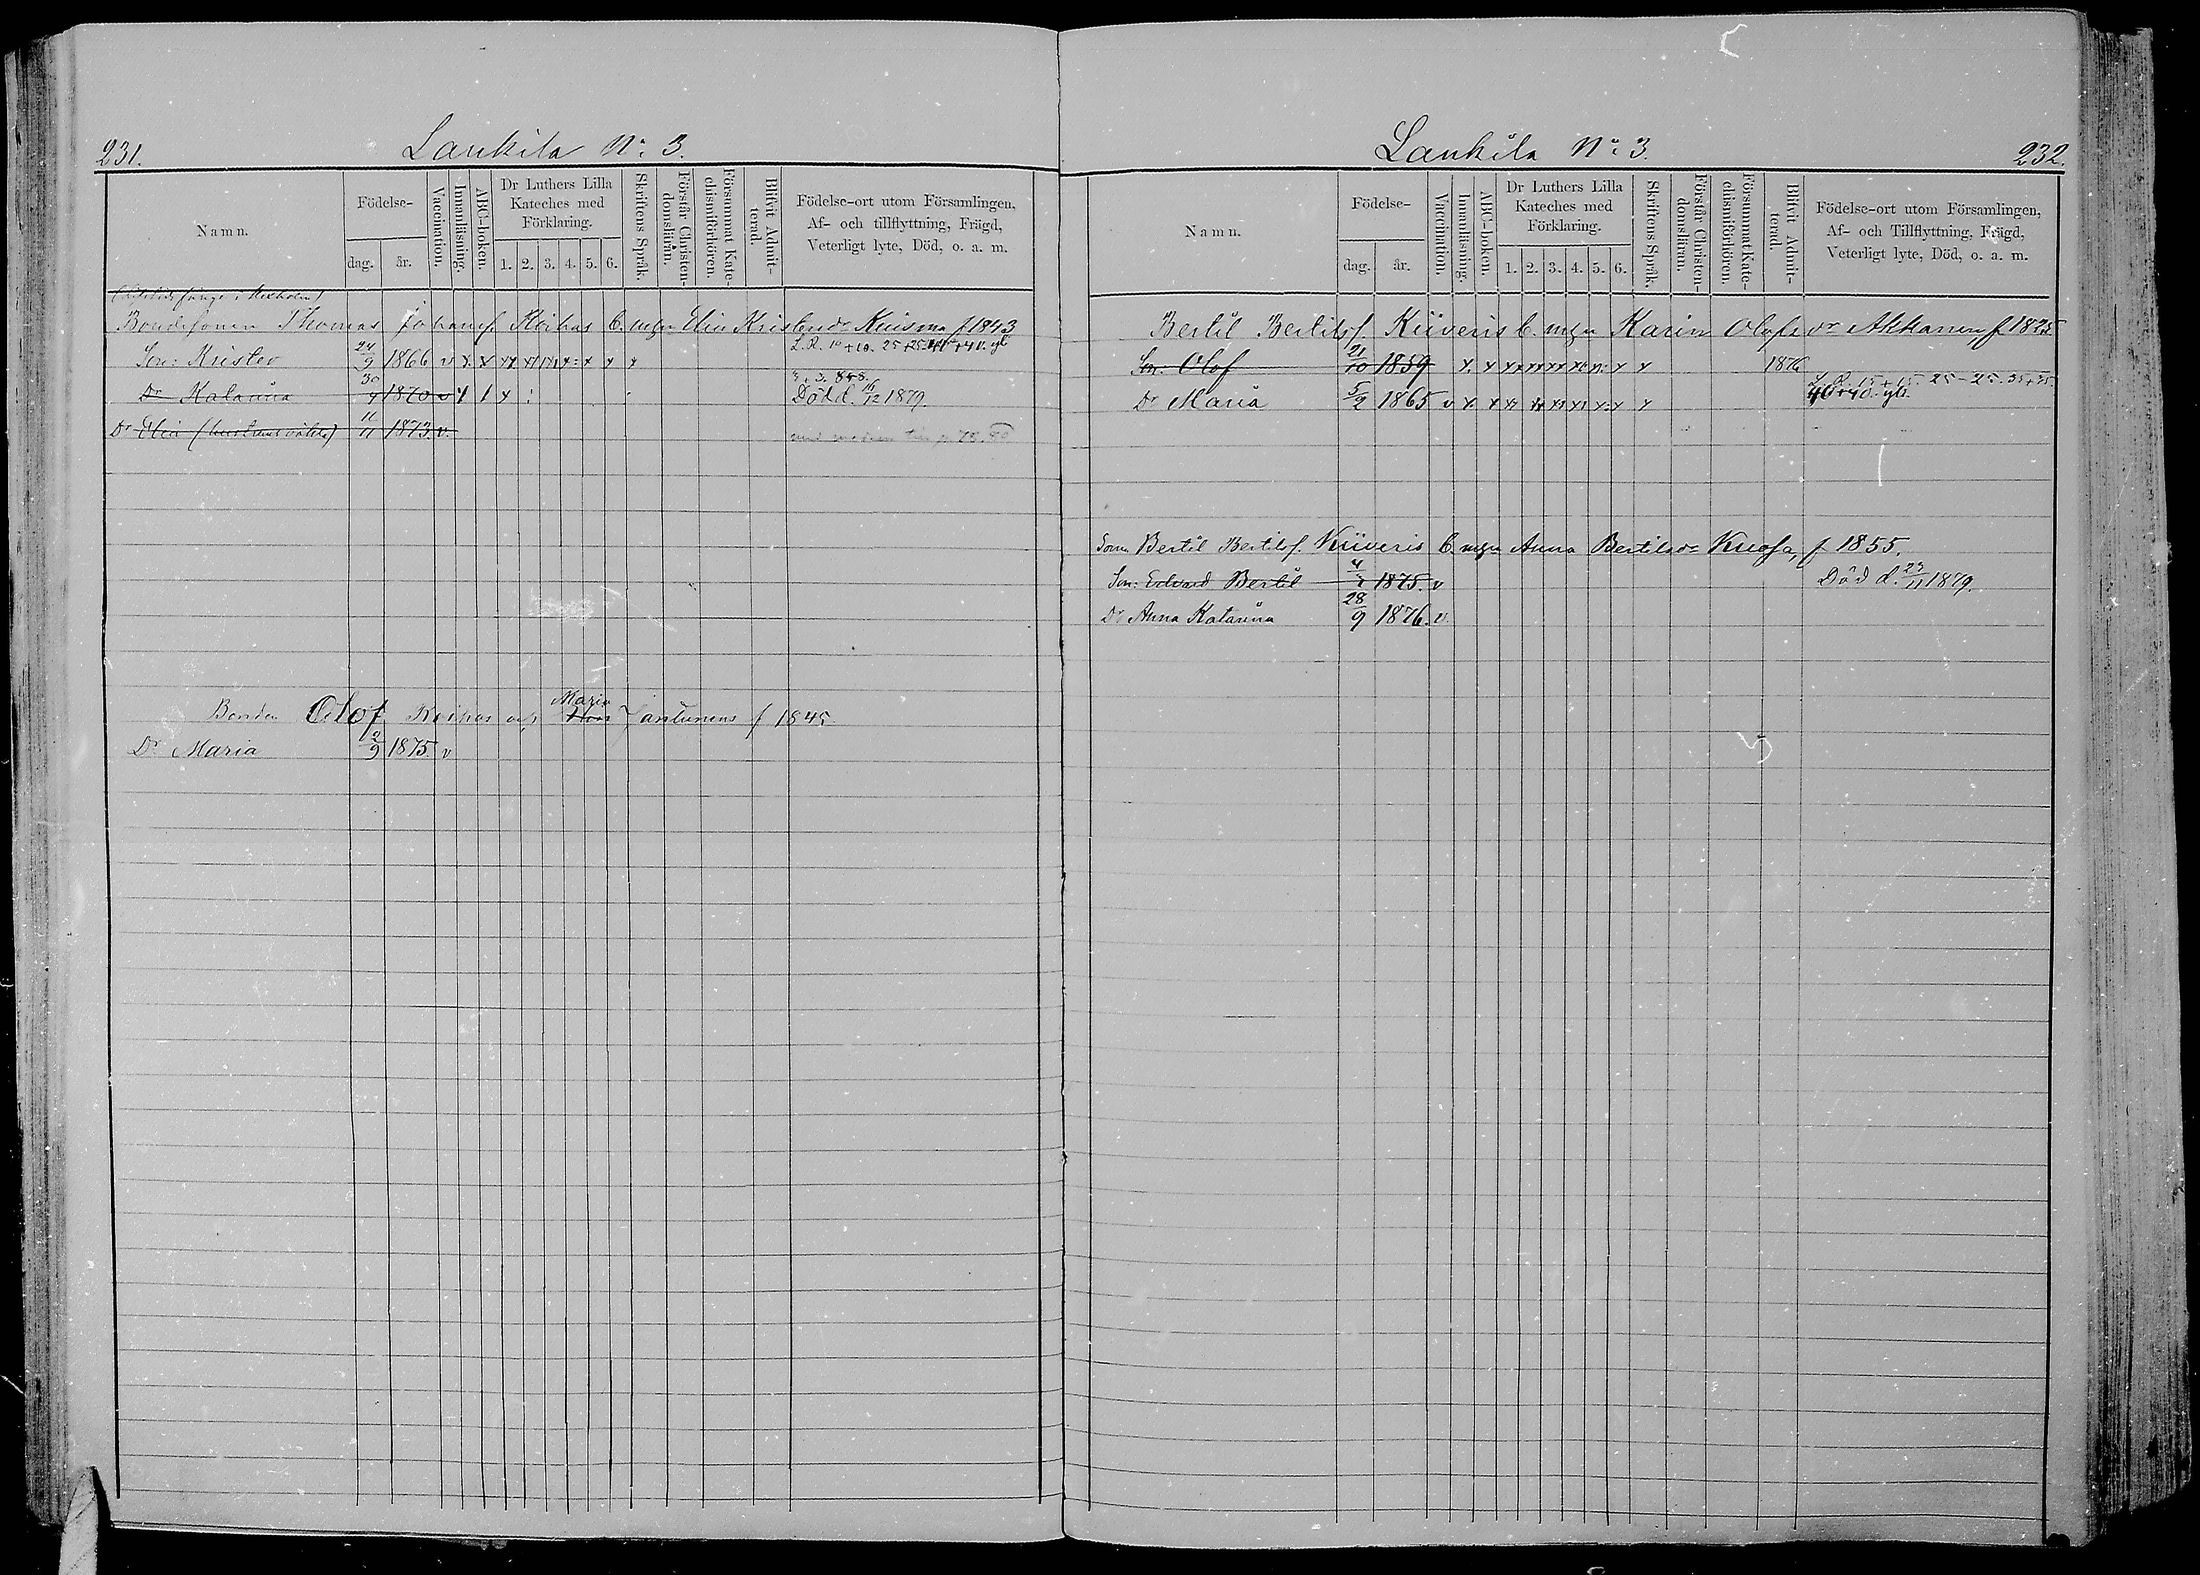 231.
Laukila No 3.
Namn.
Födelse-
dag. år.
Vaccination.
Innanläsning.
ABC-boken.
Dr Luthers Lilla Kateches med Förklaring.
1. 2. 3. 4. 5. 6.
Skriftens Språk.
Förstår Christendomsläran.
Försummat Katechismiförhören.
Blifvit Admitterad.
Födelse-ort utom Församlingen,
Af- och tillflyttning, Frägd,
Veterligt lyte, Död, o. a. m.
Bondesonen Thomas Johansf. Roihas C. m/gn Elin Kristersdr Kuisma f 1843
Son: Krister 24/9 1866 v
Dr Katarina 30/9 1870 v Död d. 16/12 1879.
Dr Elin 11/11 1873. v.
Bonden Olof Roihas Maria Jantunens f 1845
Dr Maria 2/9 1875. v
232.
Laukila No 3.
Namn.
Födelse-
dag. år.
Vaccination
Innanläsning.
ABC-boken.
Dr Luthers Lilla Kateches med Förklaring.
1. 2. 3. 4. 5. 6.
Skriftens Språk.
Förstår Christendomsläran.
Försummat Katechismiförhören.
Blifvit Admitterad.
Födelse-ort utom Församlingen,
Af- och Tillflyttning, Frägd,
Veterligt lyte, Död, o. a. m.
Bertil Bertilsf. Kiiveris C. m/gn Karin Olofsdr Ahkanen, f 1825
Son: Olof 21/10 1859 1876
Dr Maria 5/2 1865 v
Sonen Bertil Bertilsf. Kiiveris C. m/gn Anna Bertilsdr Kuosa, f 1855.
Son: Edvard Bertil 1875. v Död d. 23/11 1879.
Dr Anna Katarina 28/9 1876. v.